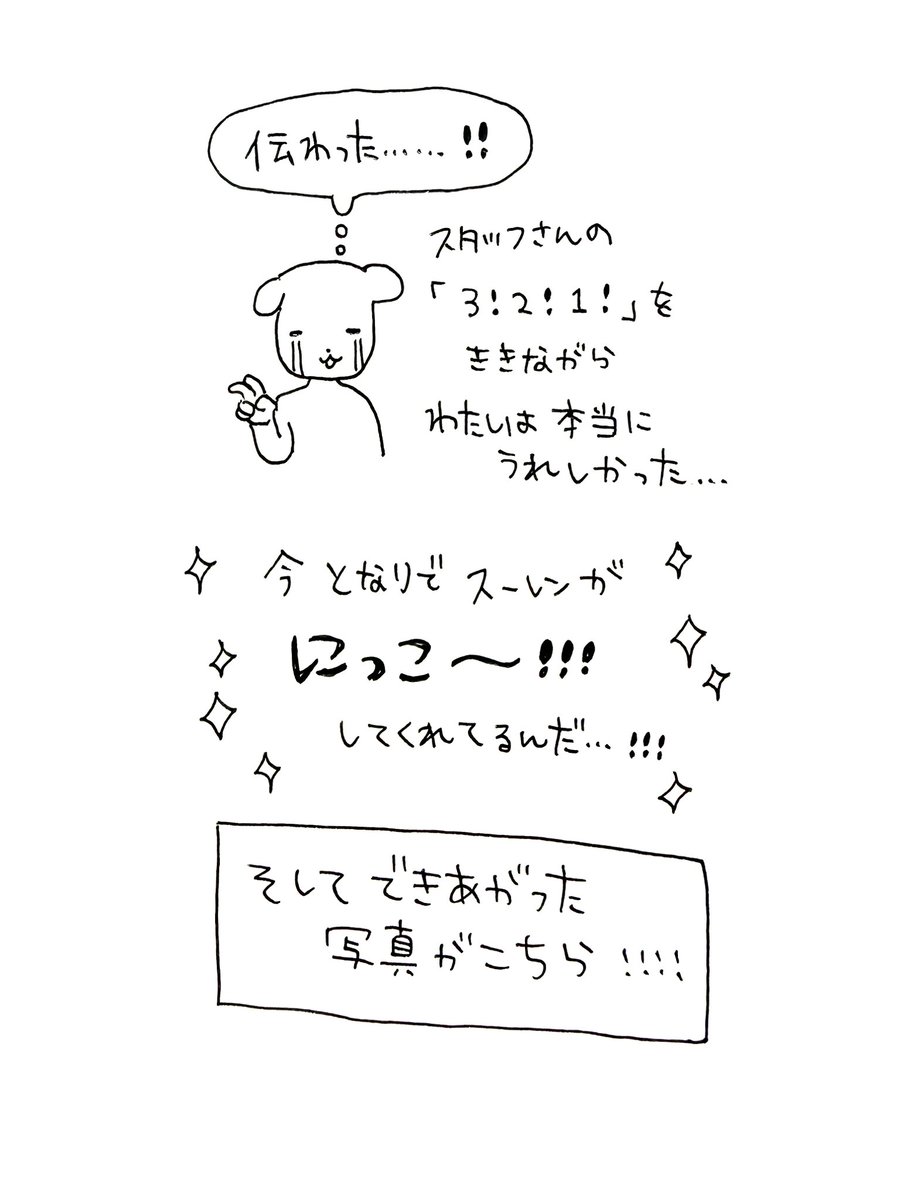 伝わった……!!
スタッフさんの
「3!2!1!」を
ききながら
わたしは本当に
うれしかった…
今となりでスーレンが
にっこ〜!!!
してくれてるんだ…!!!
そしてできあがった
写真がこちら!!!!